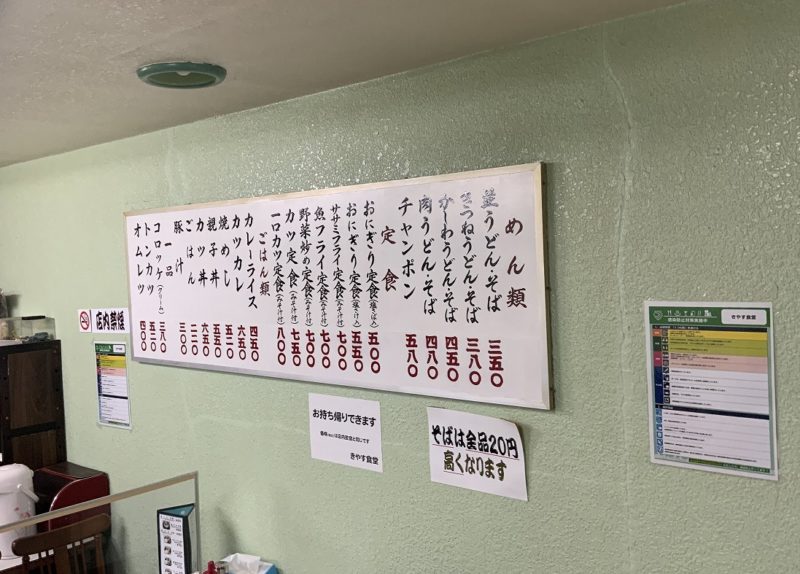 めん類
並うどん・そば 三五〇
きつねうどん・そば 三八〇
かしわうどん・そば 四五〇
肉うどん・そば 四八〇
チャンポン 五八〇
定食
おにぎり定食 五〇〇
おにぎり定食 五五〇
ササミフライ定食(みそ汁付) 七〇〇
魚フライ定食(みそ汁付) 七〇〇
野菜炒め定食(みそ汁付) 七〇〇
カツ定食(みそ汁付) 七五〇
一口カツ定食(みそ汁付) 八〇〇
ごはん類
カレーライス 四五〇
カツカレー 六五〇
焼めし
親子丼 五五〇
カツ丼 六五〇
ごはん
豚汁 三〇〇
一品
コロッケ(クリーム) 三八〇
トンカツ
オムレツ 四〇〇
店内禁煙
お持ち帰りできます
きやす食堂
そばは全品20円
高くなります
感染防止対策実施中
きやす食堂